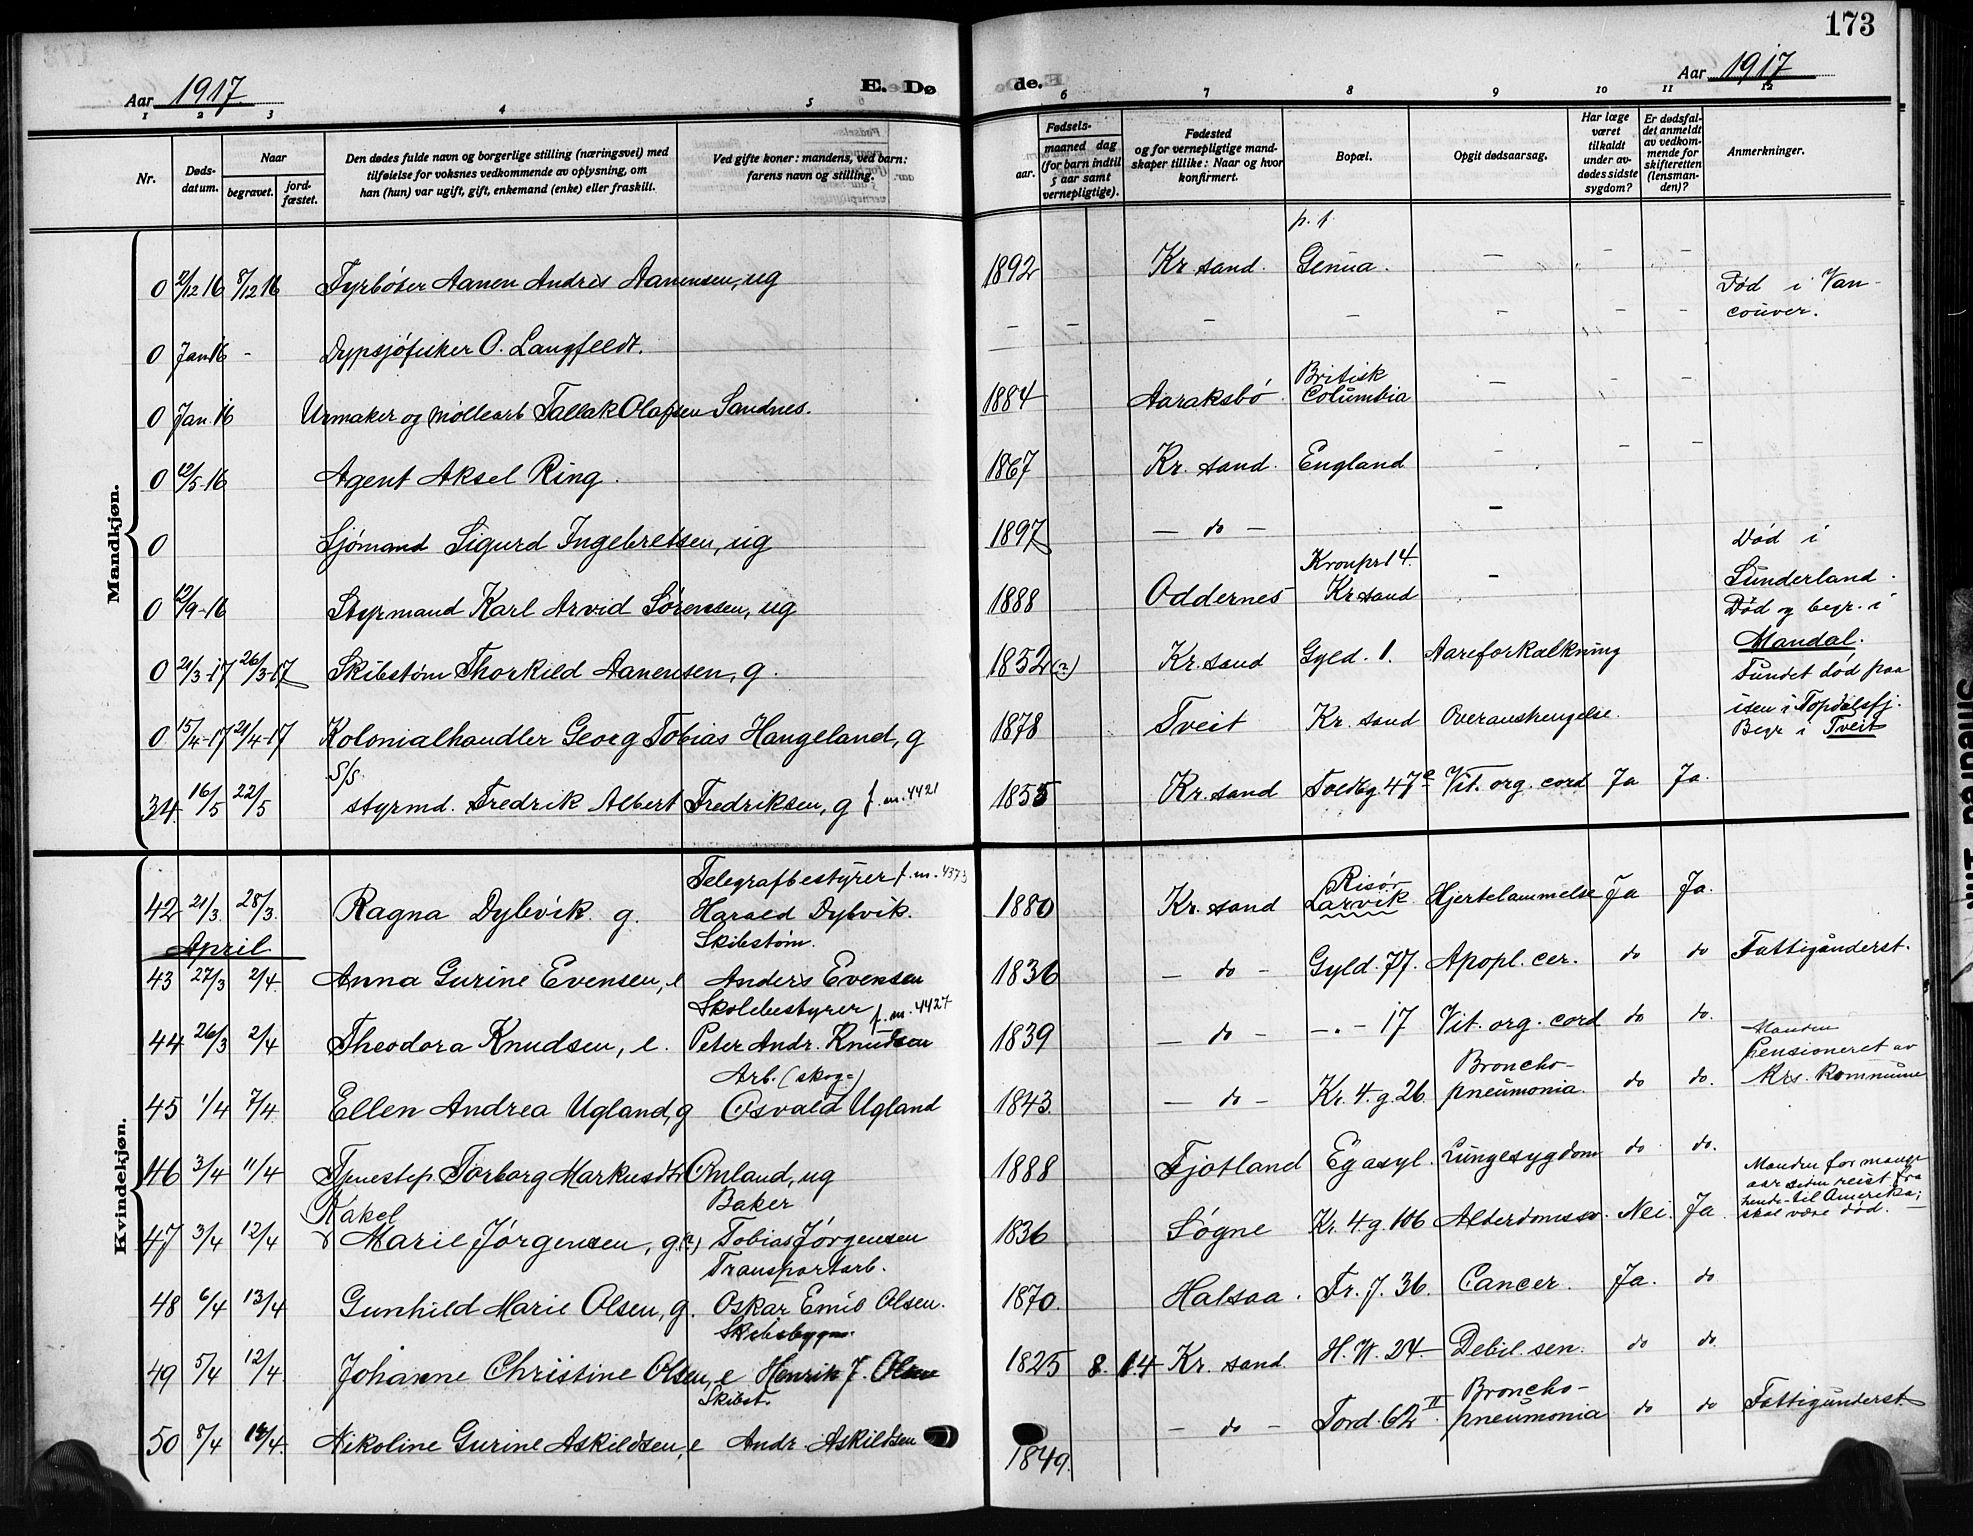 173
Aar 1917
E. Dø
de.
Aar 1917
1 2 3 4 5 6 7 8 9 10 11 12
Nr.
Døds-
datum.
Naar
begravet.
jord-
fæstet.
Den dødes fulde navn og borgerlige stilling (næringsvei) med
tilføielse for voksnes vedkommende av oplysning, om
han (hun) var ugift, gift, enkemand (enke) eller fraskilt.
Ved gifte koner: mandens, ved barn:
farens navn og stilling.
Fødsels-
aar.
maaned dag
(for barn indtil
5 aar samt
vernepligtige).
Fødested
og for vernepligtige mand-
skaper tillike: Naar og hvor
konfirmert.
Bopæl.
Opgit dødsaarsag.
Har læge
været
tilkaldt
under av-
dødes sidste
sygdom?
Er dødsfal-
det anmeldt
av vedkom-
mende for
skifteretten
(lensman-
den)?
Anmerkninger.
Mandkjøn.
p. t.
0 2/12 16 8/12 16 Fyrbøter Aanen Andris Aanensen, ug 1892 Kr. sand. Genua. - - -
Død i Van-
couver.
0 Jan 16 - Dypsjøfisker O. Langfeldt. - - - - - - -
Britisk
0 Jan. 16 Urmaker og møllearb Tallak Olafsen Sandnes. 1884 Aaraksbø. Columbia - - -
0 12/5-16 Agent Aksel Ring. 1867 Kr. sand. England - - -
0 Sjømand Sigurd Ingebretsen, ug 1897 - do - -
Død i
Sunderland.
Kronprs 14.
0 12/9-16 Styrmand Karl Arvid Sørensen, ug 1888 Oddernes Kr sand -
Død og begr. i
Mandal.
0 21/3-17 26/3-17 Skibstøm Thorkild Aanensen, g. 1852(?) Kr. sand Gyld. 1. Aareforkalkning
Fundet død paa
isen i Topdalsfj.
Begr i Tveit
0 15/4-17 21/4-17 Kolonialhandler Georg Tobias Hangeland, g 1878 Tveit Kr. sand Overanstrengelse.
S/S.
34. 16/5 22/5 styrmd. Fredrik Albert Fredriksen, g f. m. 4421 1855 Kr. sand Toldbg. 47 Vit. org. cord Ja Ja.
Kvindekjøn.
Telegrafbestyrer f. m. 4373
Risør
42 21/3. 28/3. Ragna Dybvik. g. Harald Dybvik. 1880 Kr. sand Larvik Hjertelammelse Ja Ja.
April
Skibstøm.
43 27/3 2/4. Anna Gurine Evensen, e Anders Evensen 1836 - do - Gyld. 77. Apopl. cer. do do Fattigunderst.
Skolebestyrer f. m. 4427
44 26/3 2/4 Theodora Knudsen, e. Peter Andr. Knudsen 1839 - do - -.- 17 Vit. org. cord do do.
Manden
pensioneret av
Krs. Kommune
Arb. (skog=)
Broncho-
45 1/4 7/4. Ellen Andrea Ugland, g Osvald Ugland 1843. - do - Kr. 4. g. 26. pneumonia. do do.
46 3/4 11/4 Tjenestep. Torborg Markusdtr Omland, ug 1888 Fjotland Egasyl. Lungesygdom do do.
Manden for mange
aar siden reist fra
hende til Amerika;
skal være død. -
Baker
47 3/4 12/4 Marie Jørgensen, g(?) Tobias Jørgensen 1836 Søgne Kr. 4. g. 106 Alderdomssv. Nei. Ja
Transportarb.
48 6/4 13/4 Gunhild Marie Olsen, g. Oskar Emil Olsen. 1870. Halsaa. Fr. J. 36. Cancer. Ja. do
Skibsbygm.
49 5/4 12/4. Johanne Christine Olsen, e Henrik J. Olsen 1825 8. 14 Kr. sand H. W. 24. Debil. sen. do do.
Skibst.
Broncho-
50 8/4 14/4. Nikoline Gurine Askildsen, e Andr. Askildsen 1849. - do - Tord. 62 II. pneumonia do do Fattigunderst